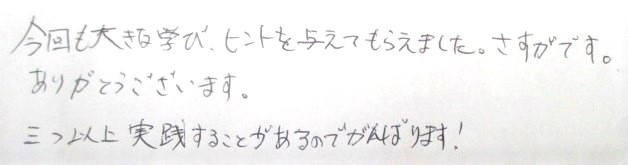 今回も大きな学び、ヒントを与えてもらえました。さすがです。
ありがとうございます。
三つ以上実践することがあるのでがんばります!